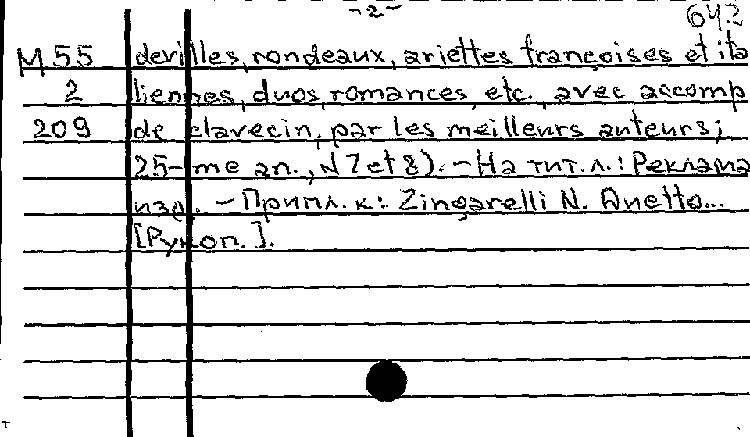 -2-
642
M 55 devilles, rondeaux, ariettes françoises et ita
2 liennes, duos, romances, etc., avec accomp
209 de clavecin, par les meilleurs auteurs;
25-me an., N 7 et 8). - На тит. л.: Реклама
изд. - Припл. к: Zingarelli N. Duetto...
[Рукоп.].